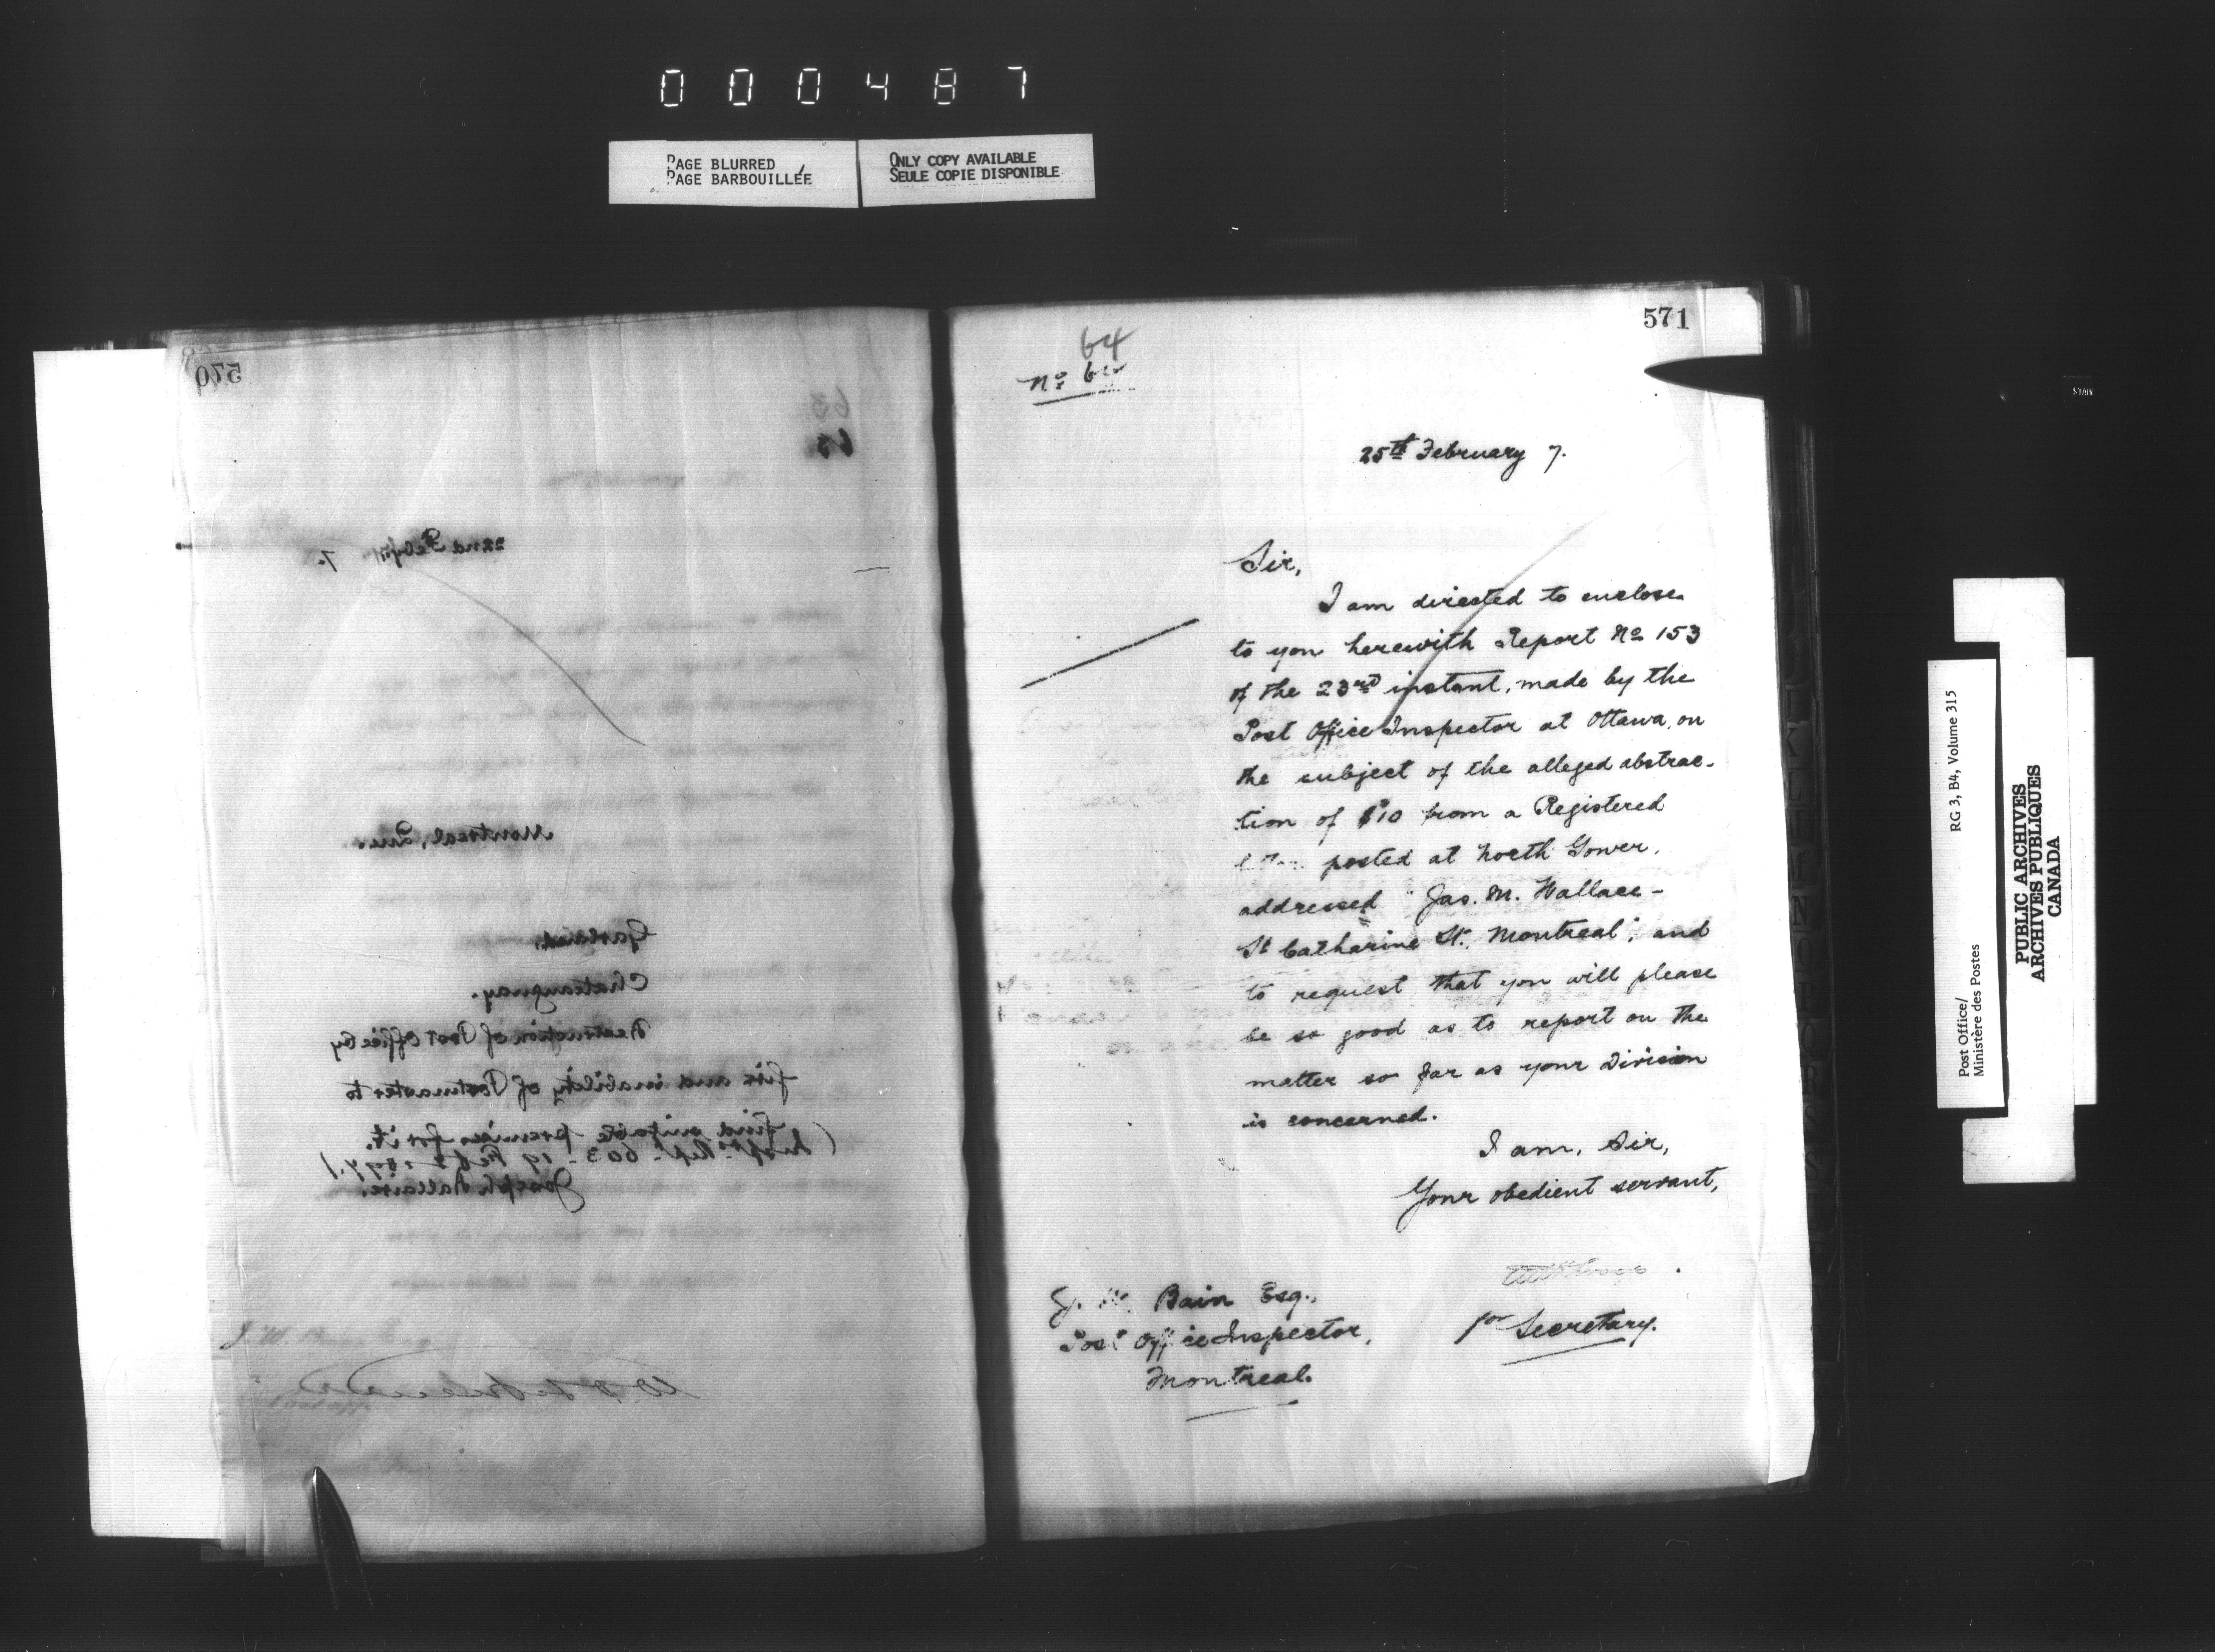 000487
PAGE BLURRED
PAGE BARBOUILLÉE
ONLY COPY AVAILABLE
SEULE COPIE DISPONIBLE
570
63
63
22nd Feby 7.
Montreal, Que.
Chateauguay.
Destruction of Post Office by
fire and inability of Postmaster to
find suitable premises for it.
(Inspr's Rep. 603 - 19 Feb 1897.)
Joseph
J. W. Bain Esq
571
64
No
25th February 7.
Sir,
I am directed to enclose
to you herewith Report No 153
of the 23rd instant, made by the
Post Office Inspector at Ottawa, on
the subject of the alleged abstrac-
tion of $10 from a Registered
posted at North Gower,
addressed "Jas. M. Wallace -
St Catharine St. Montreal", and
to request that you will please
be so good as to report on the
matter so far as your Division
is concerned.
I am, Sir,
Your obedient servant,
for Secretary.
J. W. Bain Esq.,
Post Office Inspector,
Montreal.
Post Office/
Ministère des Postes
RG 3, B4, Volume 315
PUBLIC ARCHIVES
ARCHIVES PUBLIQUES
CANADA